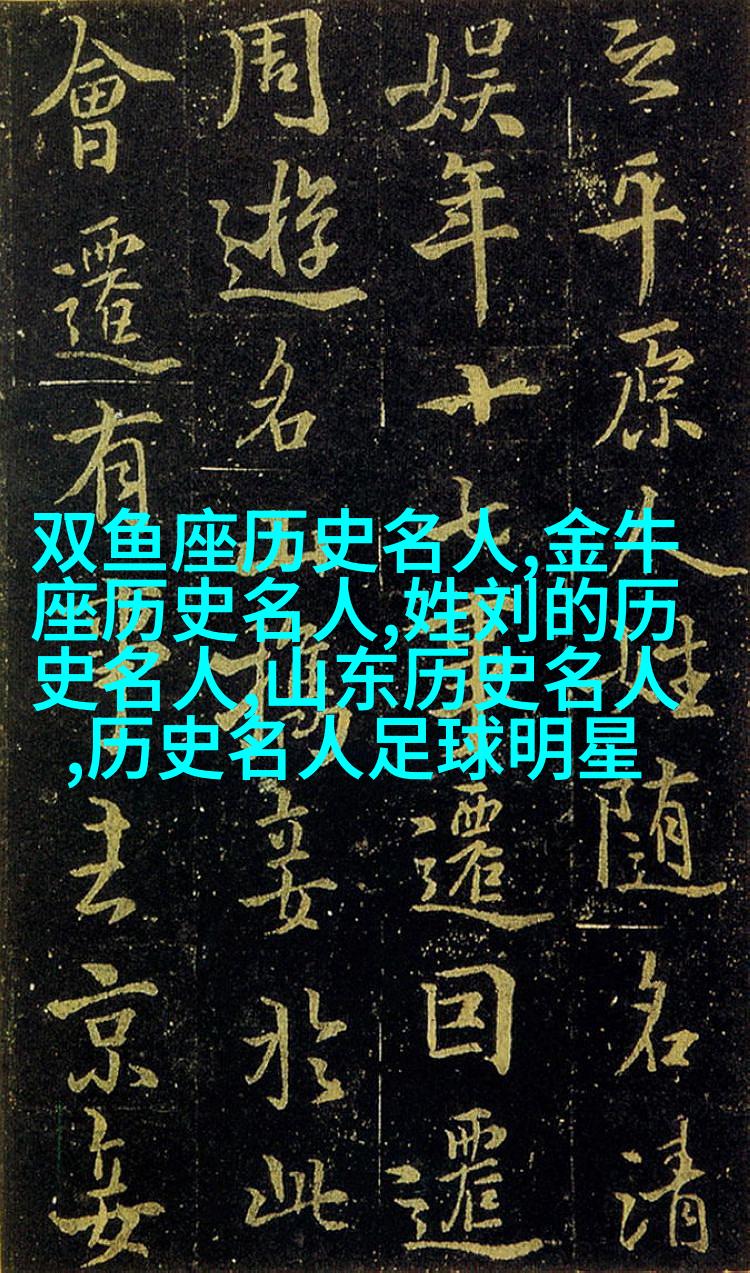 之平原人姓随名清
娱年十七遷回遷
周遊名山携妾於此
會遷有京妾
双鱼座历史名人,金牛
座历史名人,姓刘的历
史名人,山东历史名人
,历史名人足球明星